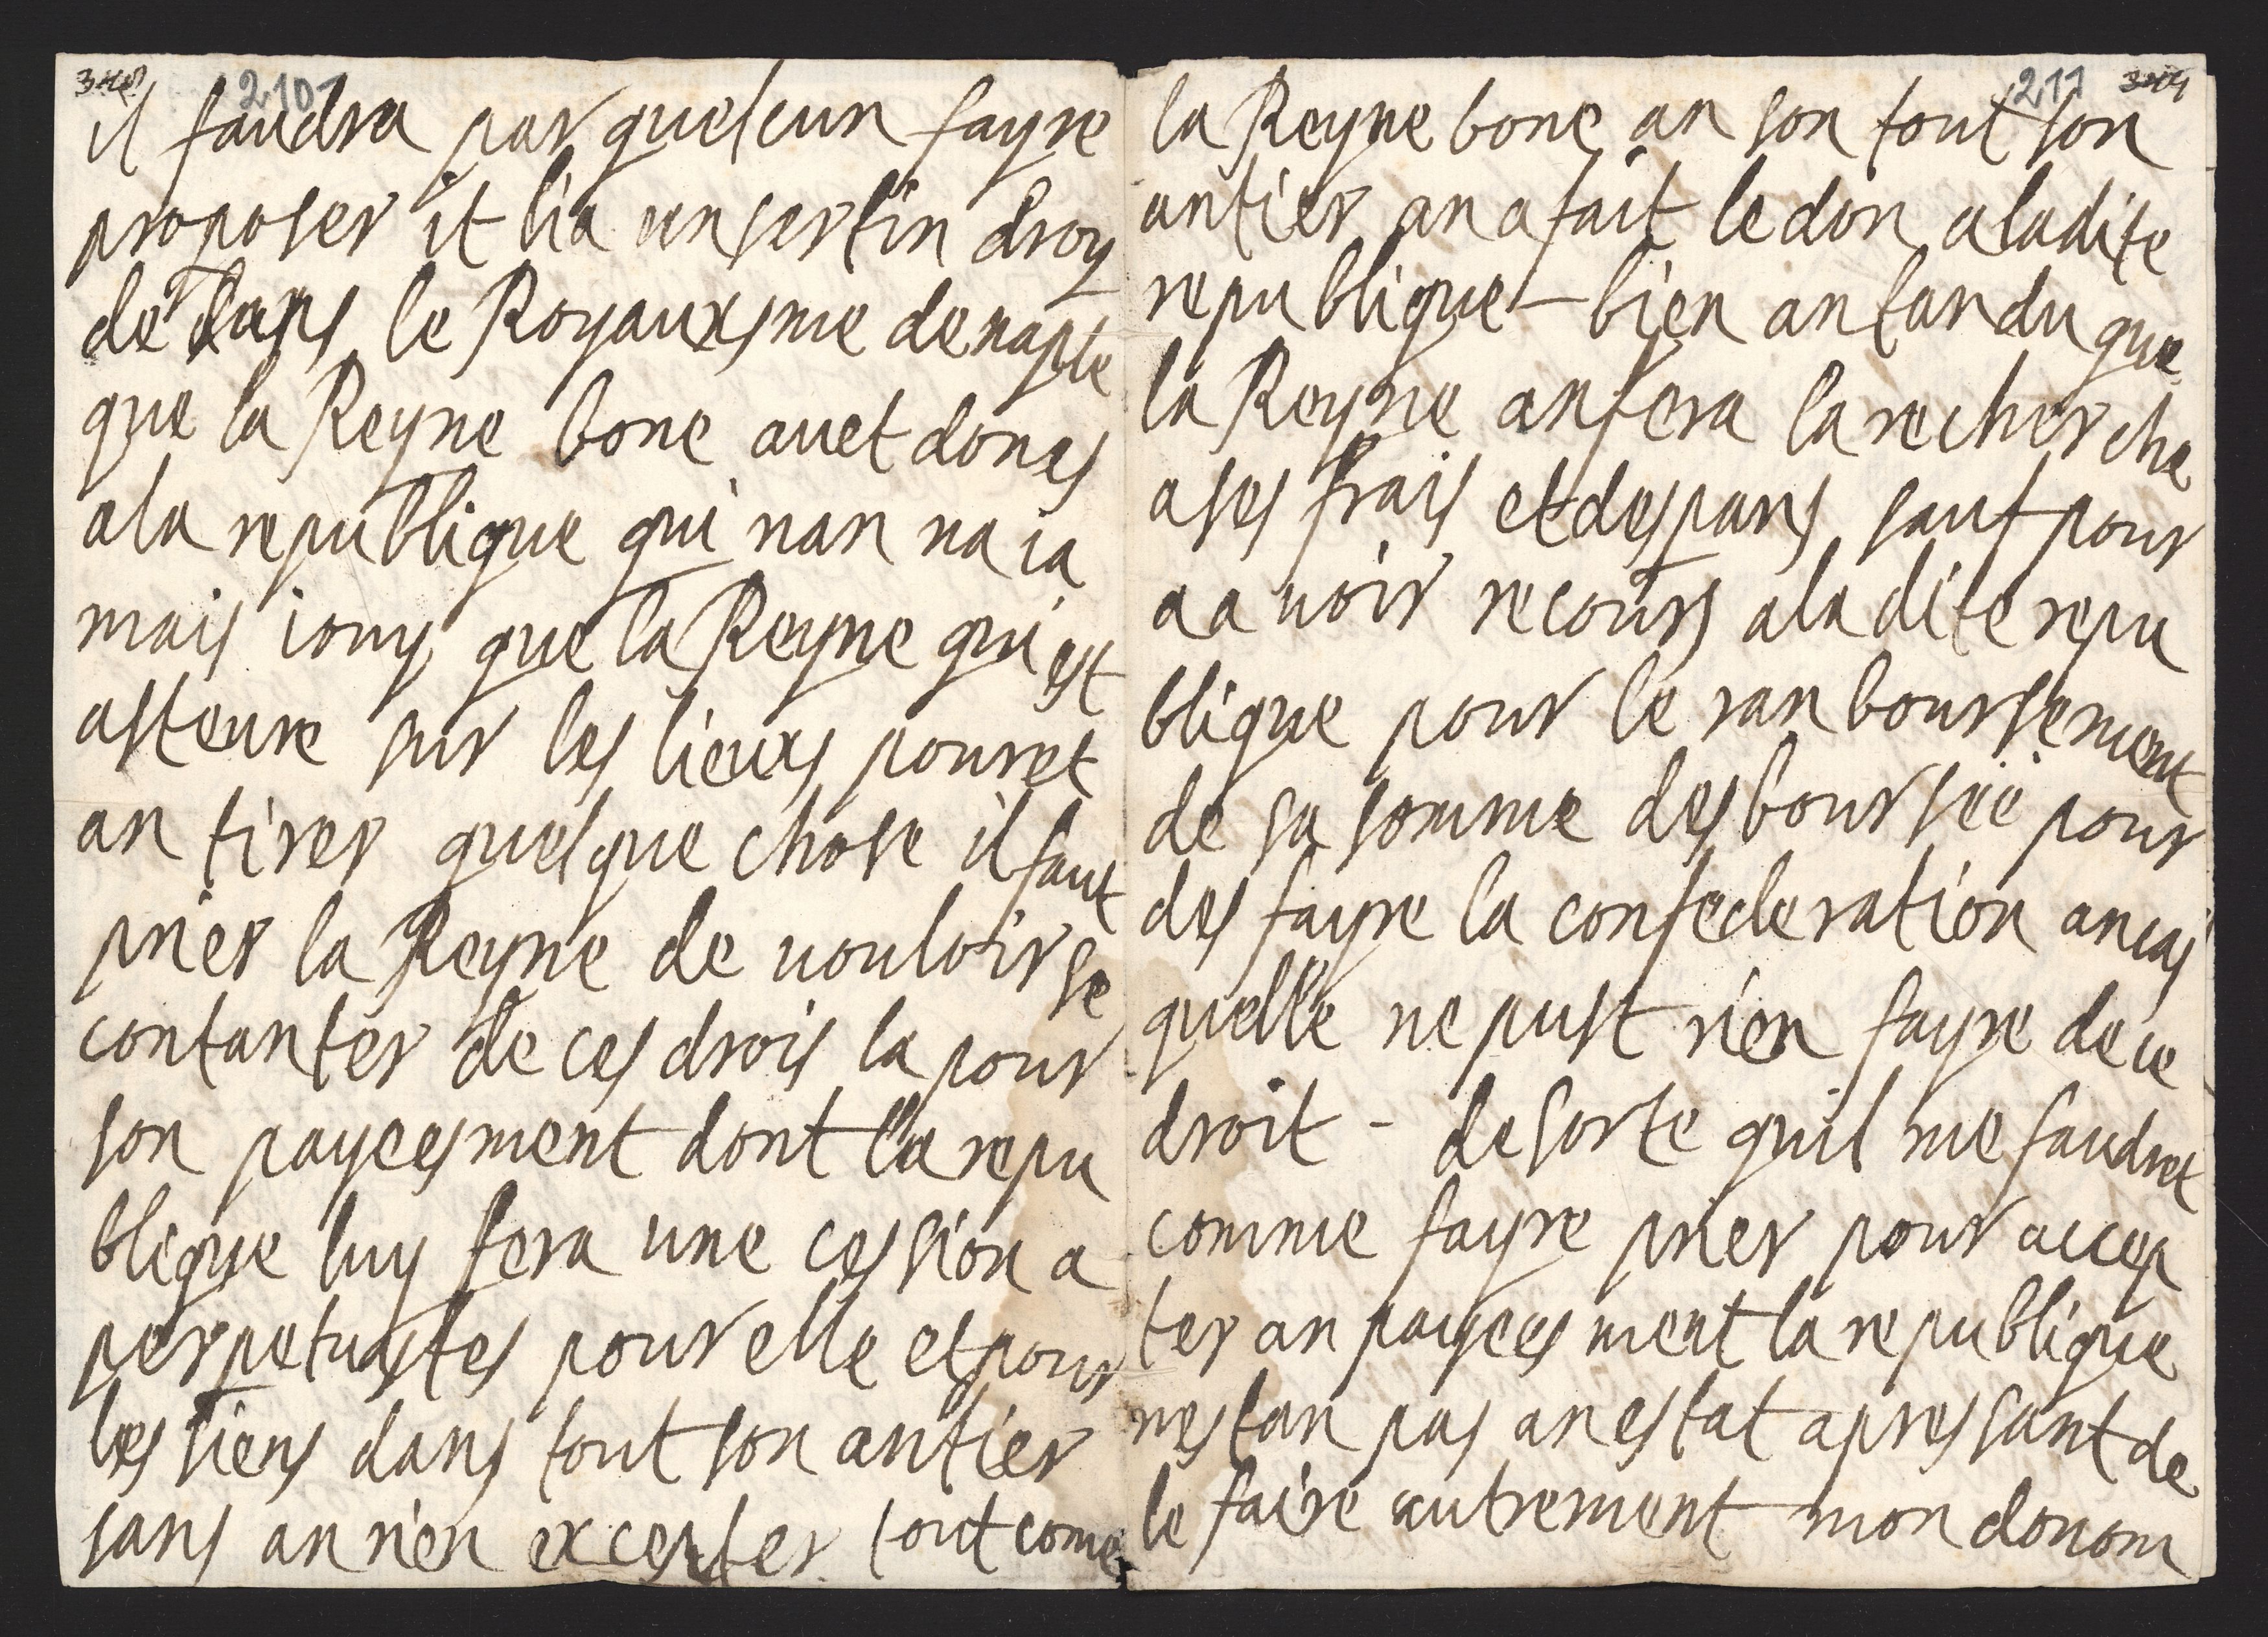 210
il faudra par quelcun fayre
proposer it lia un sertin droy
de dans le Royauxsme de naple
que la Reyne bone auet dones
ala republique qui nan na ia
mais iouy que la Reyne qui est
asteure sur les lieuxs pouret
an tirer quelque chose il faut
prier la Reyne de vouloir se
contanter de ces drois la pour
son payeesment dont la repu
blique luy fera une cession a
perpetuastes pour elle et pour
les siens dans tout son antier
sans an rien excepter tout come
211
la Reyne bone an son tout son
antier an a fait le don a ladite
republique - bien antandu que
la Reyne anfera la recherche
a ses frais et despans sauf pour
a a uoir recours ala dite repu
blique pour le ranboursement
de sa somme desboursée pour
des fayre la confederation ancas
quelle ne pust rien fayre de ce
droit - de sorte quil me faudret
comme fayre prier pour accep
ter an payeesment la republique
nestan pas an estat apressant de
le faire autrement mon donom